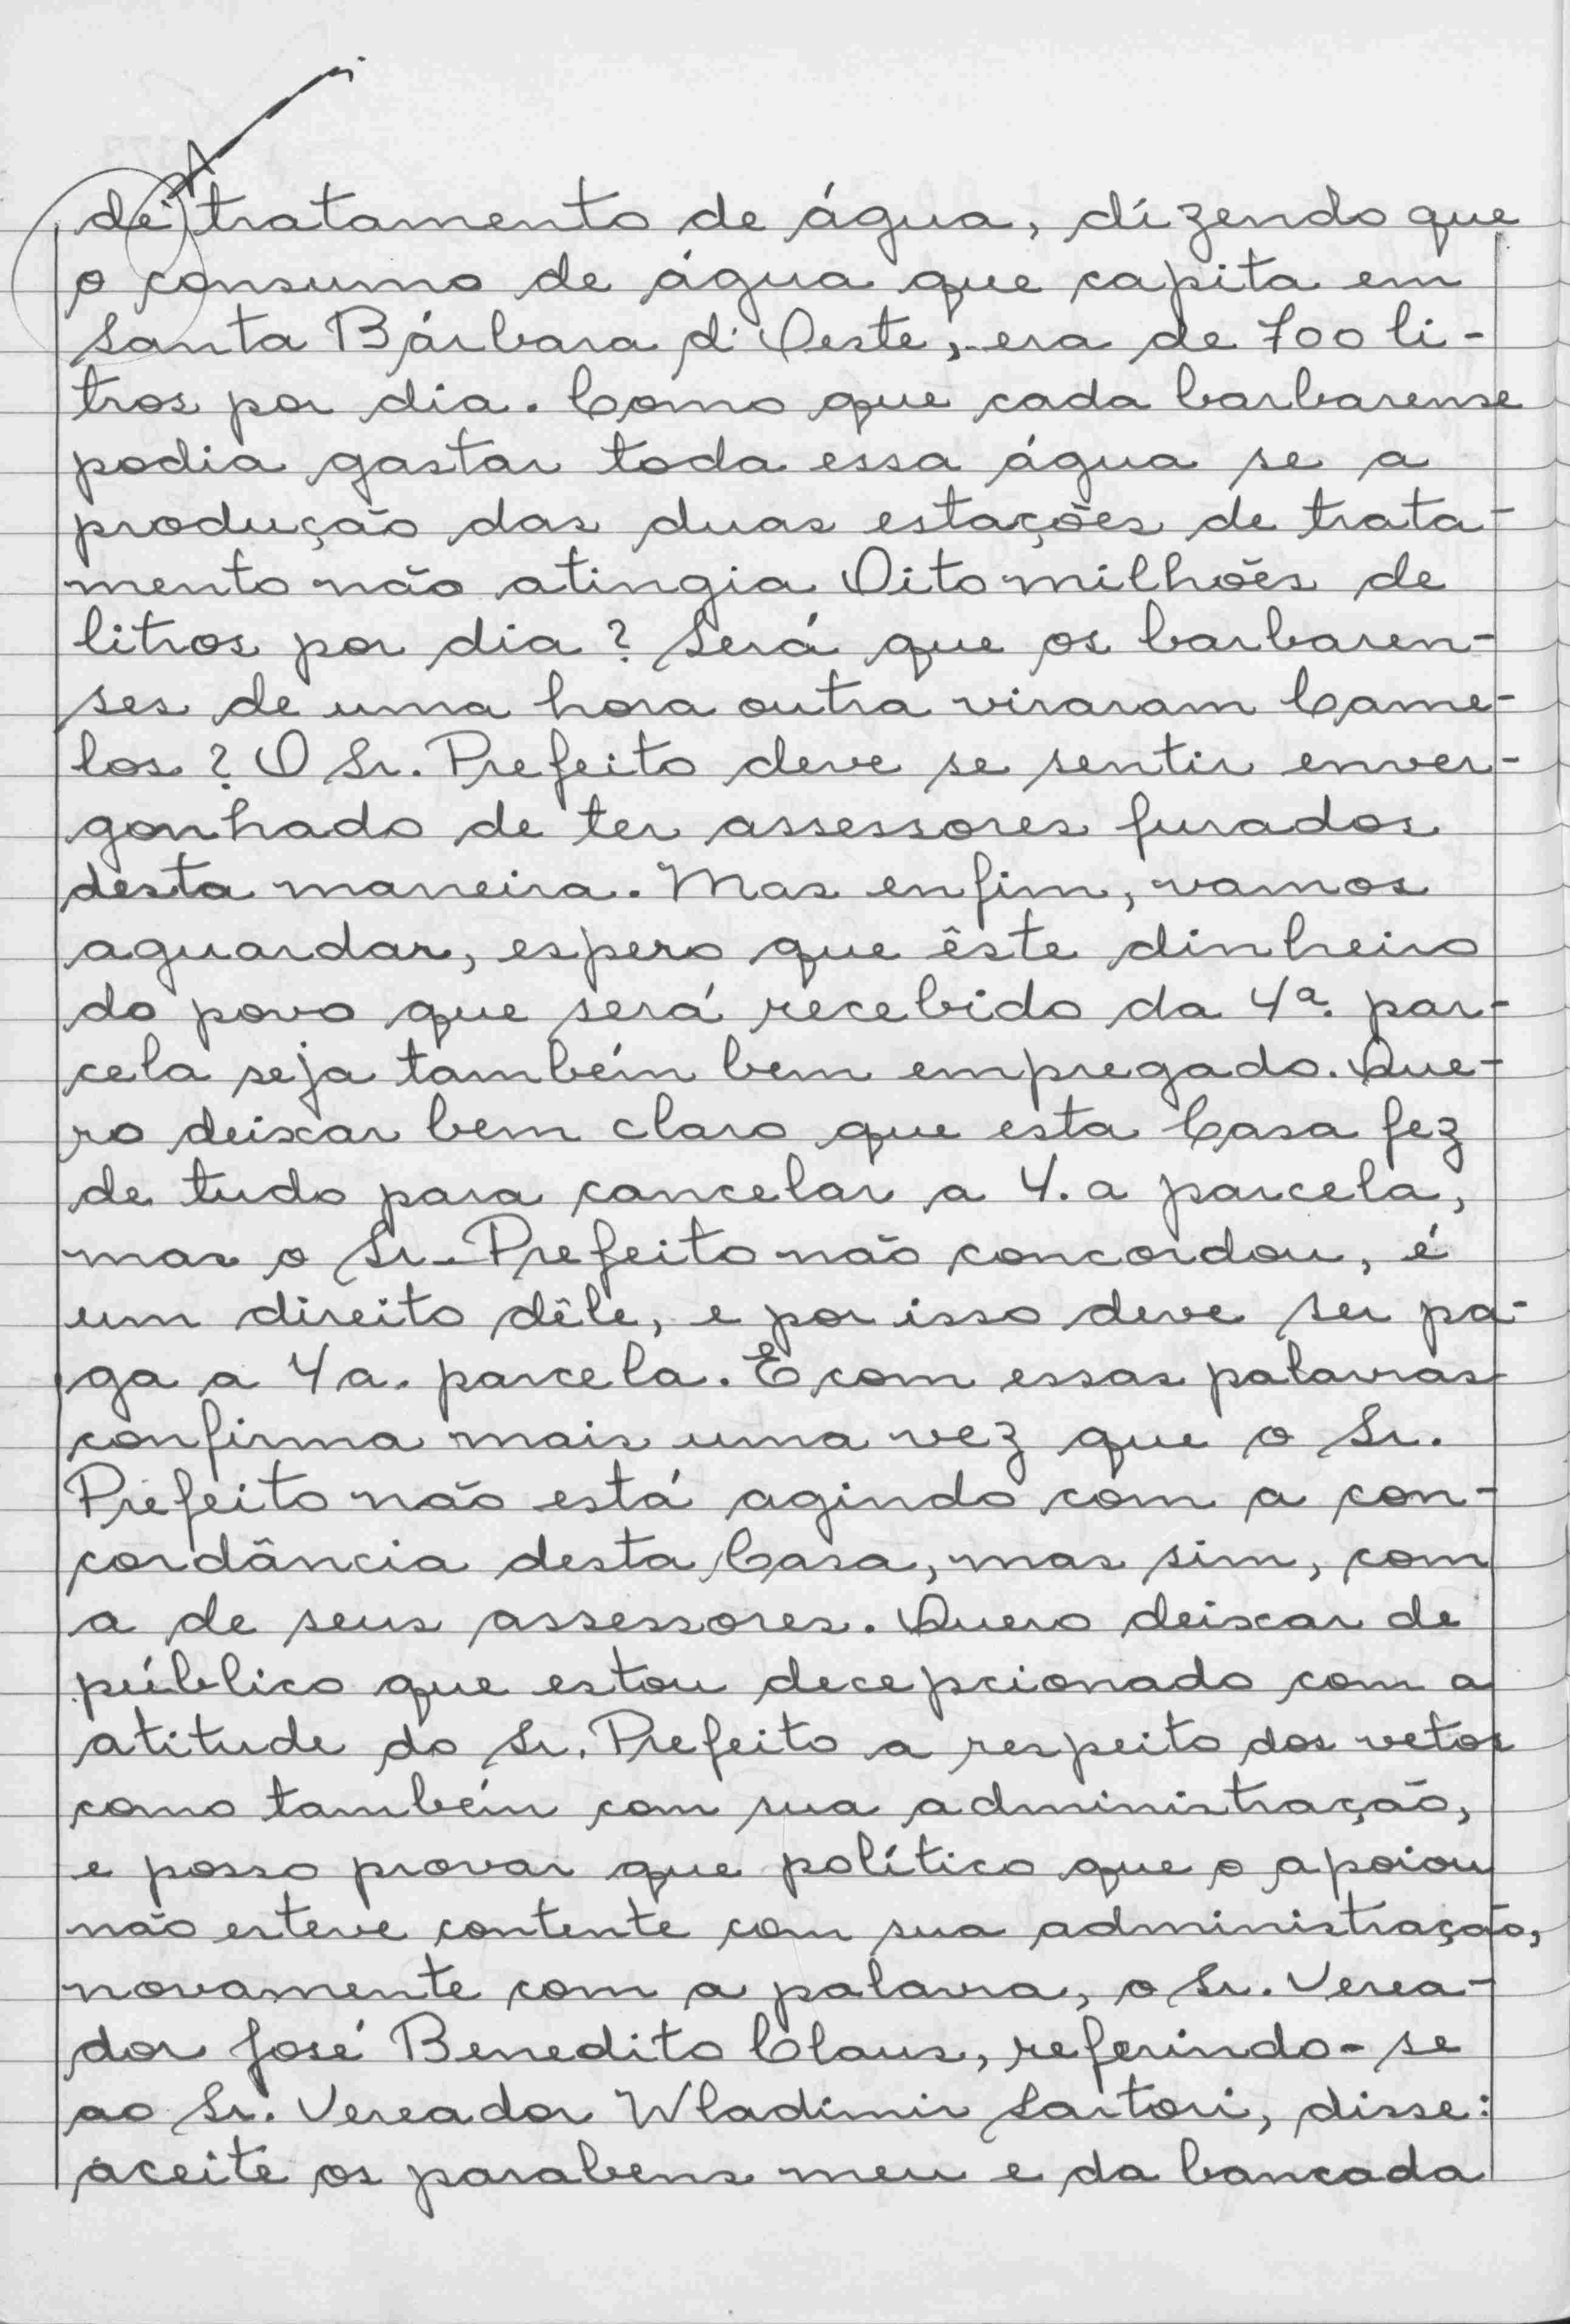 de tratamento de água, dizendo que
o consumo de água que capita em
Santa Bárbara d'Oeste, era de 700 li-
tros por dia. Como que cada barbarense
podia gastar toda essa água se a
produção das duas estações de trata-
mento não atingia Oito milhões de
litros por dia? Será que os barbaren-
ses de uma hora outra viraram Came-
los? O Sr. Prefeito deve se sentir enver-
gonhado de ter assessores furados
desta maneira. Mas enfim, vamos
aguardar, espero que êste dinheiro
do povo que será recebido da 4ª. par-
cela seja também bem empregado. Que-
ro deixar bem claro que esta Casa fez
de tudo para cancelar a 4.a parcela,
mas o Sr. Prefeito não concordou, é
um direito dêle, e por isso deve ser pa-
ga a 4a. parcela. E com essas palavras
confirma mais uma vez que o Sr.
Prefeito não está agindo com a con-
cordância desta Casa, mas sim, com
a de seus assessores. Quero deixar de
público que estou decepcionado com a
atitude do Sr. Prefeito a respeito dos vetos
como também com sua administração,
e posso provar que político que o apoiou
não esteve contente com sua administração,
novamente com a palavra, o Sr. Verea-
dor José Benedito Claus, referindo-se
ao Sr. Vereador Wladimir Sartori, disse:
aceite os parabens meu e da bancada